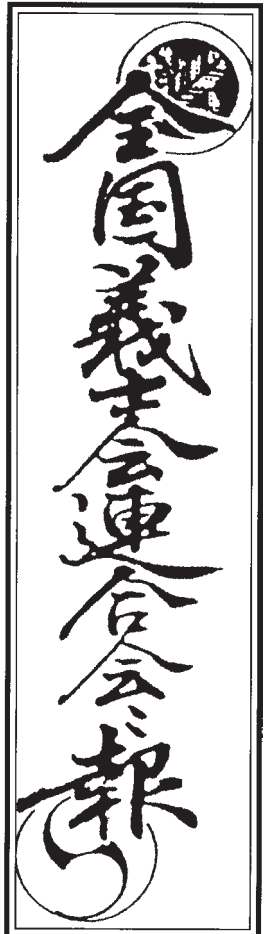 全国義士会連合会〻報